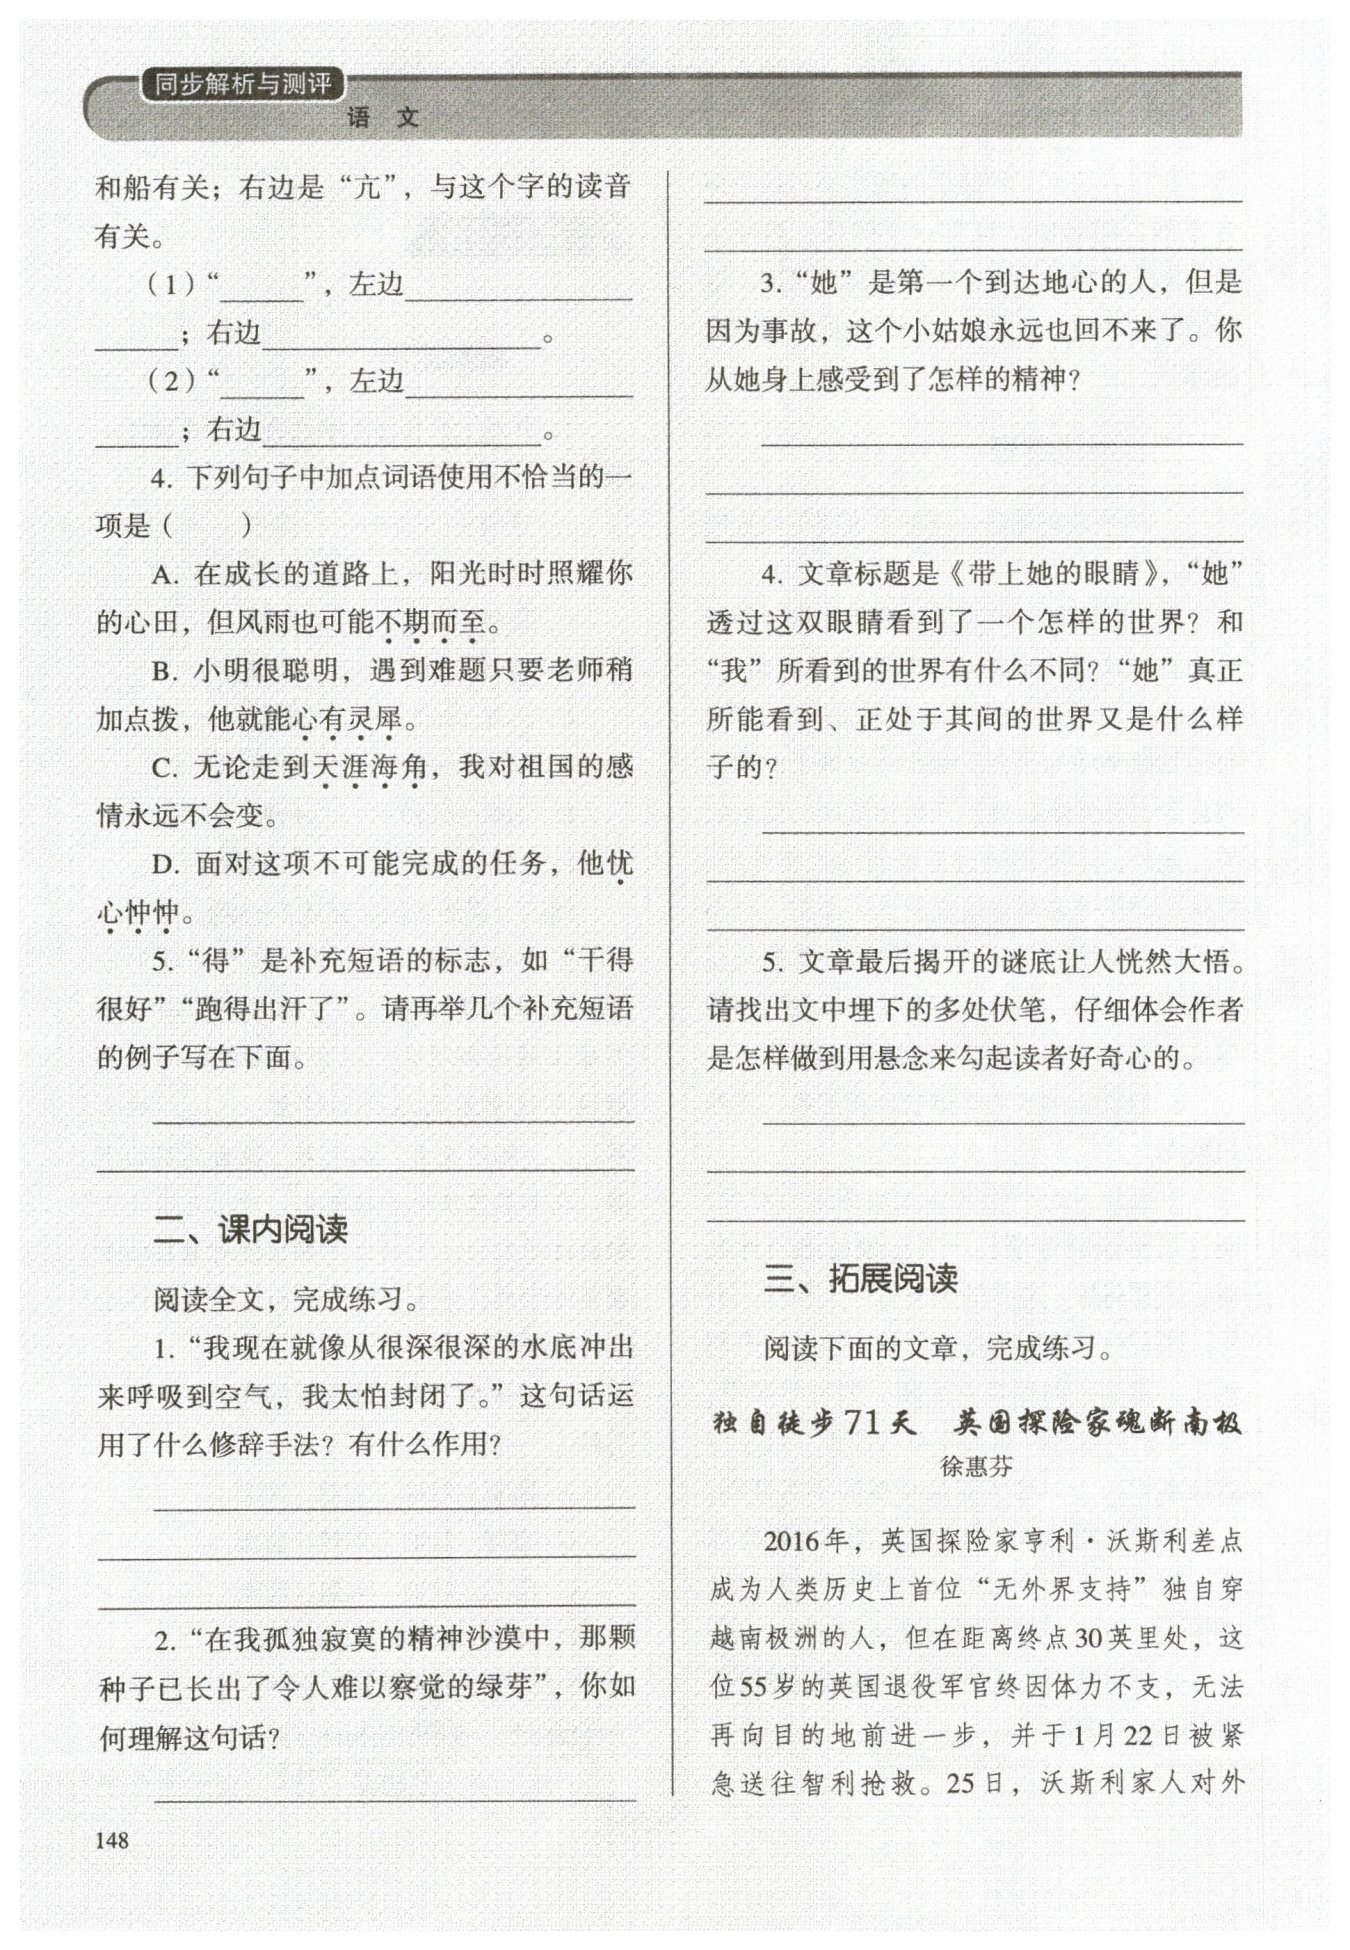 同步解析与测评
语 文
和船有关；右边是“亢”，与这个字的读音
有关。
（1）“______”，左边________________
______；右边____________________。
（2）“______”，左边________________
______；右边____________________。
4. 下列句子中加点词语使用不恰当的一
项是（　　）
A. 在成长的道路上，阳光时时照耀你
的心田，但风雨也可能不期而至。
B. 小明很聪明，遇到难题只要老师稍
加点拨，他就能心有灵犀。
C. 无论走到天涯海角，我对祖国的感
情永远不会变。
D. 面对这项不可能完成的任务，他忧
心忡忡。
5. “得”是补充短语的标志，如“干得
很好”“跑得出汗了”。请再举几个补充短语
的例子写在下面。
二、课内阅读
阅读全文，完成练习。
1. “我现在就像从很深很深的水底冲出
来呼吸到空气，我太怕封闭了。”这句话运
用了什么修辞手法？有什么作用？
2. “在我孤独寂寞的精神沙漠中，那颗
种子已长出了令人难以察觉的绿芽”，你如
何理解这句话？
148
3. “她”是第一个到达地心的人，但是
因为事故，这个小姑娘永远也回不来了。你
从她身上感受到了怎样的精神？
4. 文章标题是《带上她的眼睛》，“她”
透过这双眼睛看到了一个怎样的世界？和
“我”所看到的世界有什么不同？“她”真正
所能看到、正处于其间的世界又是什么样
子的？
5. 文章最后揭开的谜底让人恍然大悟。
请找出文中埋下的多处伏笔，仔细体会作者
是怎样做到用悬念来勾起读者好奇心的。
三、拓展阅读
阅读下面的文章，完成练习。
独自徒步71天　英国探险家魂断南极
徐惠芬
2016年，英国探险家亨利·沃斯利差点
成为人类历史上首位“无外界支持”独自穿
越南极洲的人，但在距离终点30英里处，这
位55岁的英国退役军官终因体力不支，无法
再向目的地前进一步，并于1月22日被紧
急送往智利抢救。25日，沃斯利家人对外